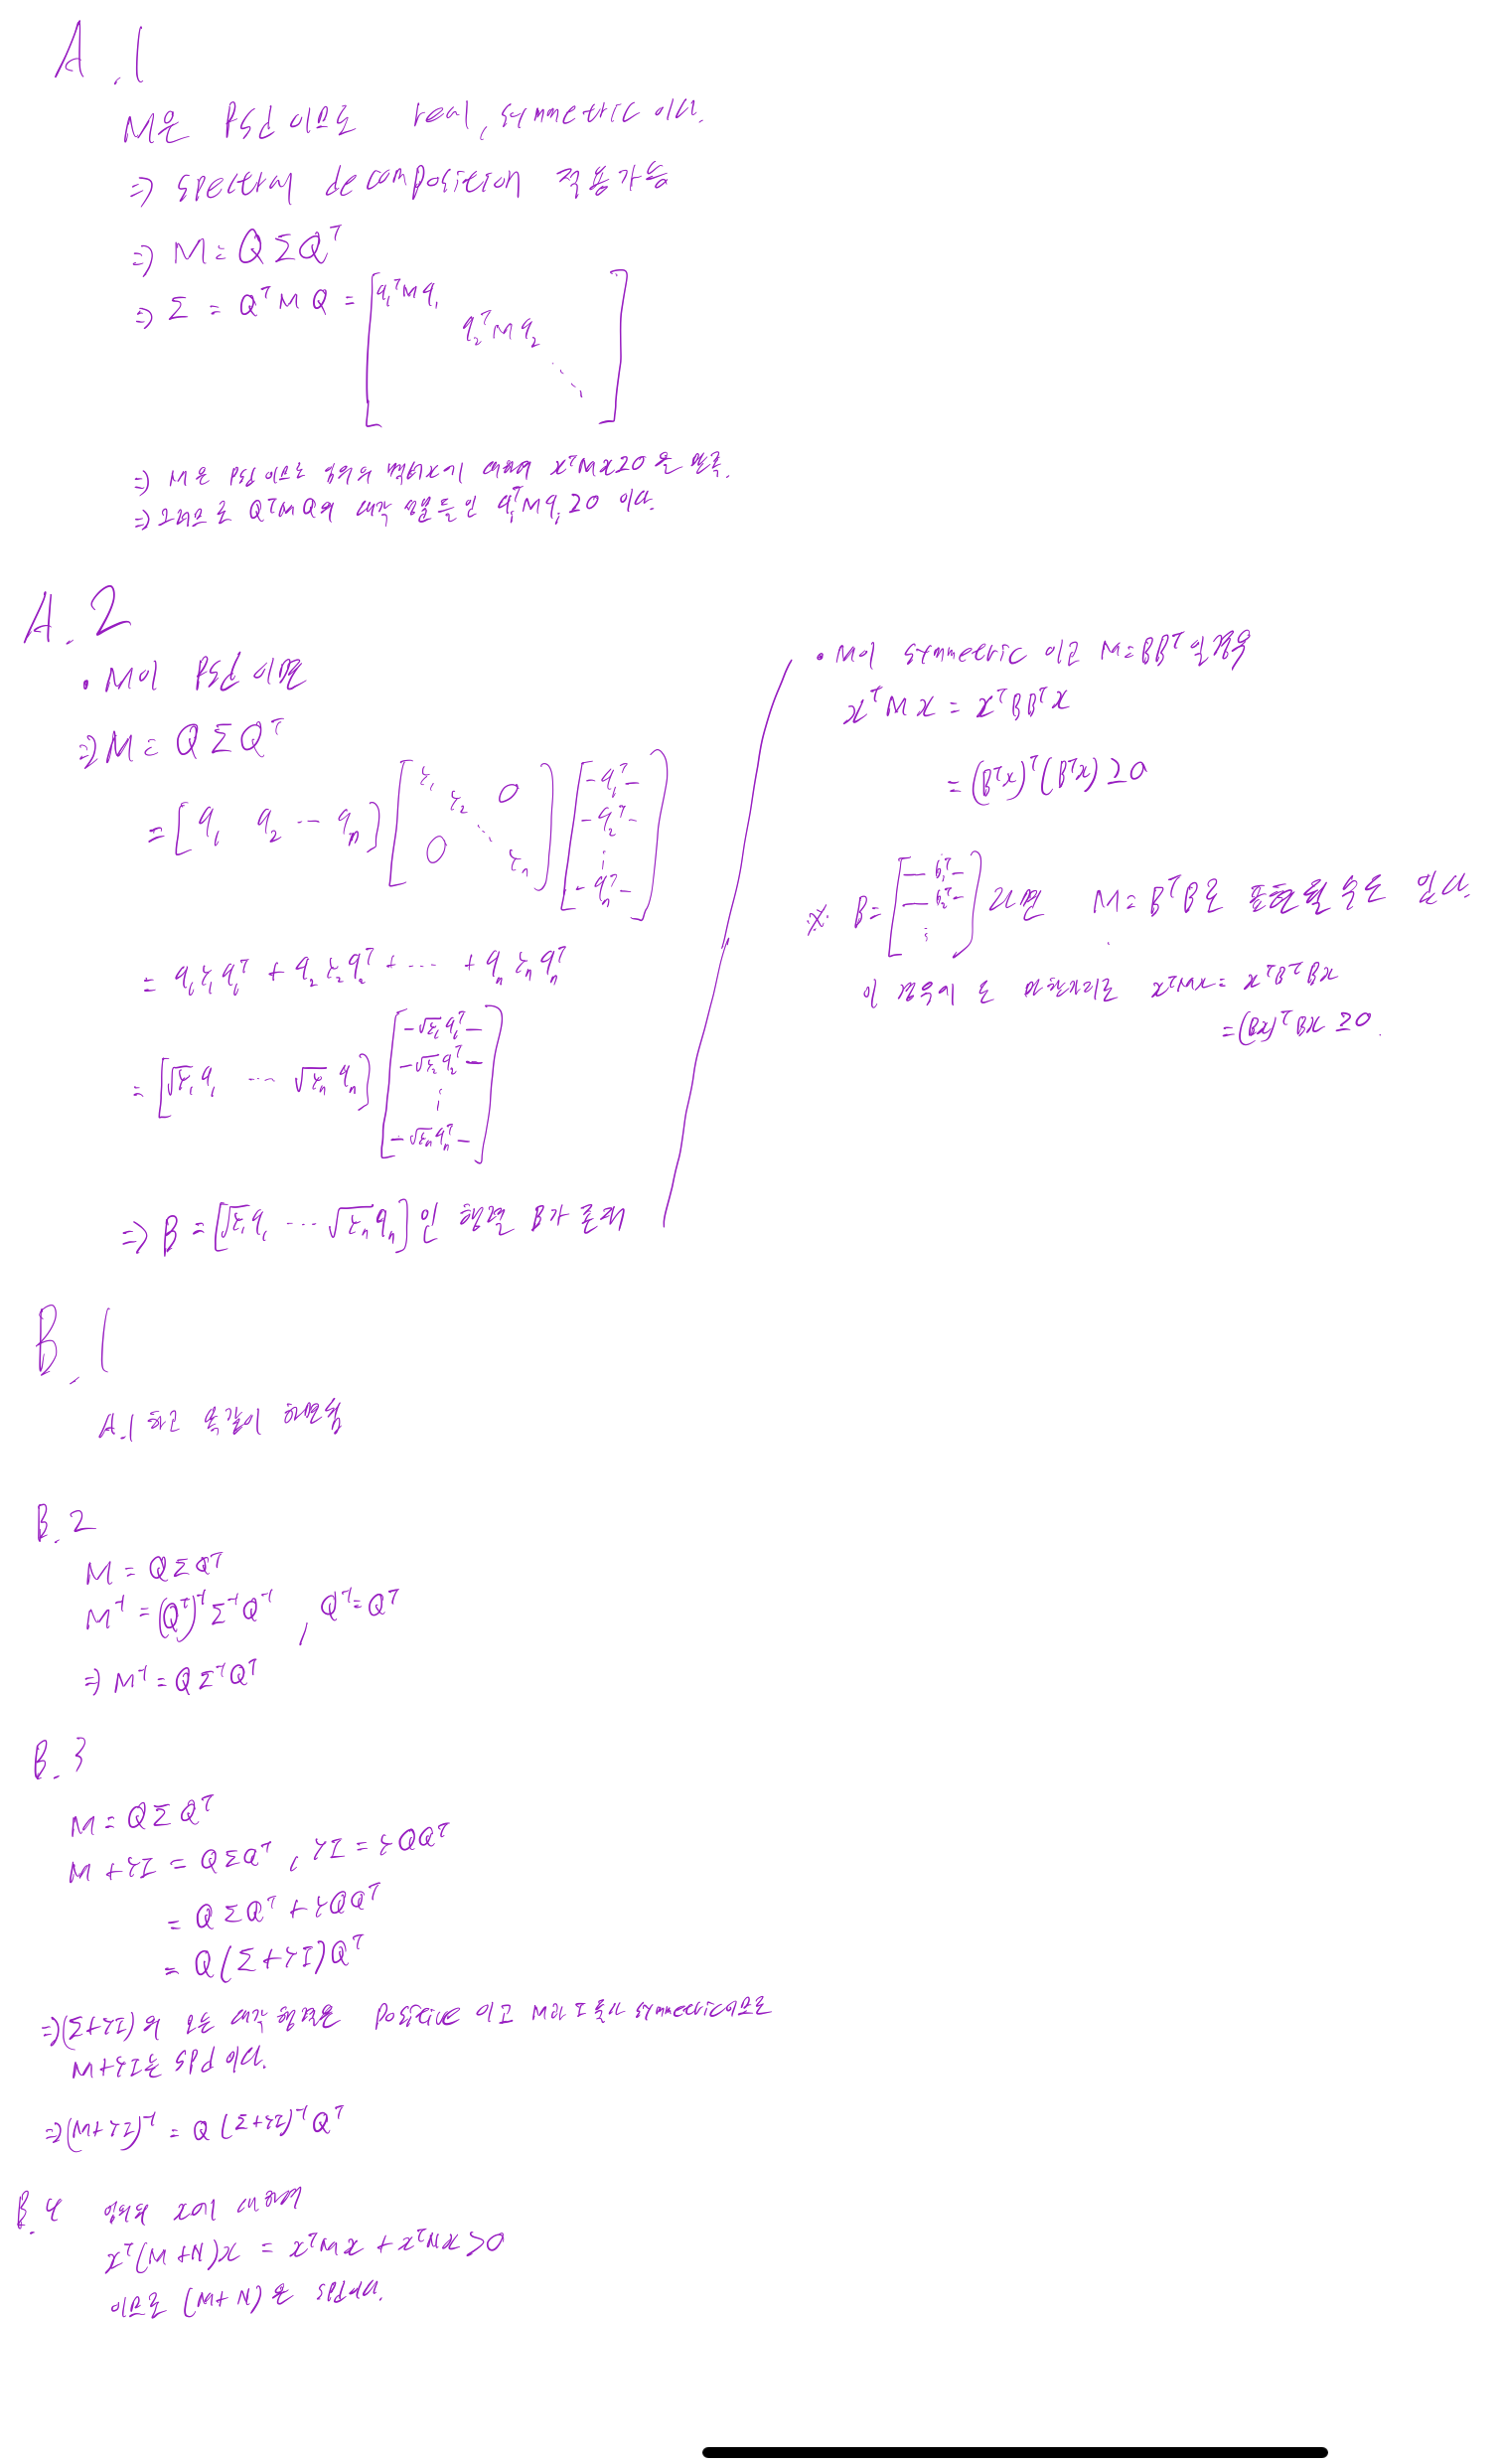 A.1
M은 Psd 이므로 real, symmetric 이다.
⇒ spectral decomposition 적용가능
⇒ M = QΣQᵀ
⇒ Σ = QᵀMQ = [q₁ᵀMq₁
q₂ᵀMq₂
⋱]
⇒ M은 psd 이므로 임의의 벡터x에 대하여 xᵀMx≥0을 만족.
⇒ 그러므로 QᵀMQ의 대각 성분들인 qᵢᵀMqᵢ≥0 이다.
A.2
• M이 Psd 이면
⇒ M = QΣQᵀ
= [q₁ q₂ ⋯ qₙ] [λ₁ λ₂ ⋱ λₙ 0 0] [-q₁ᵀ- -q₂ᵀ- ⋮ -qₙᵀ-]
= q₁λ₁q₁ᵀ + q₂λ₂q₂ᵀ + ⋯ + qₙλₙqₙᵀ
= [√λ₁q₁ ⋯ √λₙqₙ] [-√λ₁q₁ᵀ- -√λ₂q₂ᵀ- ⋮ -√λₙqₙᵀ-]
⇒ B = [√λ₁q₁ ⋯ √λₙqₙ]인 행렬 B가 존재
• M이 symmetric 이고 M=BBᵀ일 경우
xᵀMx = xᵀBBᵀx
= (Bᵀx)ᵀ(Bᵀx) ≥0
※ B = [-b₁ᵀ- -b₂ᵀ- ⋮] 라면 M=BᵀB로 표현될 수도 있다.
이 경우에도 마찬가지로 xᵀMx = xᵀBᵀBx
= (Bx)ᵀBx ≥0.
B.1
A.1하고 똑같이 하면됨
B.2
M = QΣQᵀ
M⁻¹ = (Qᵀ)⁻¹Σ⁻¹Q⁻¹ , Q⁻¹=Qᵀ
⇒ M⁻¹ = QΣ⁻¹Qᵀ
B.3
M = QΣQᵀ
M+λI = QΣQᵀ, λI = λQQᵀ
= QΣQᵀ + λQQᵀ
= Q(Σ+λI)Qᵀ
⇒(Σ+λI)의 모든 대각행렬은 Positive 이고 M과 I 둘다 symmetric이므로
M+λI는 spd 이다.
⇒(M+λI)⁻¹ = Q(Σ+λI)⁻¹Qᵀ
B.4 임의의 x에 대하여
xᵀ(M+N)x = xᵀMx + xᵀNx >0
이므로 (M+N)은 spd이다.